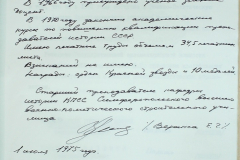 В 1966 году присвоено учёное звание
доцент.
В 1970 году закончил академические
курсы по повышению квалификации препо-
давателей истории СССР
Имею печатные труды объёмом 34,5 печатных
листа.
Взысканий не имею.
Награды: орден Красной звезды и 10 медалей
Старший преподаватель кафедры
истории КПСС Симферопольского высшего
военно-политического строительного учи-
лища
1 июля 1975 года